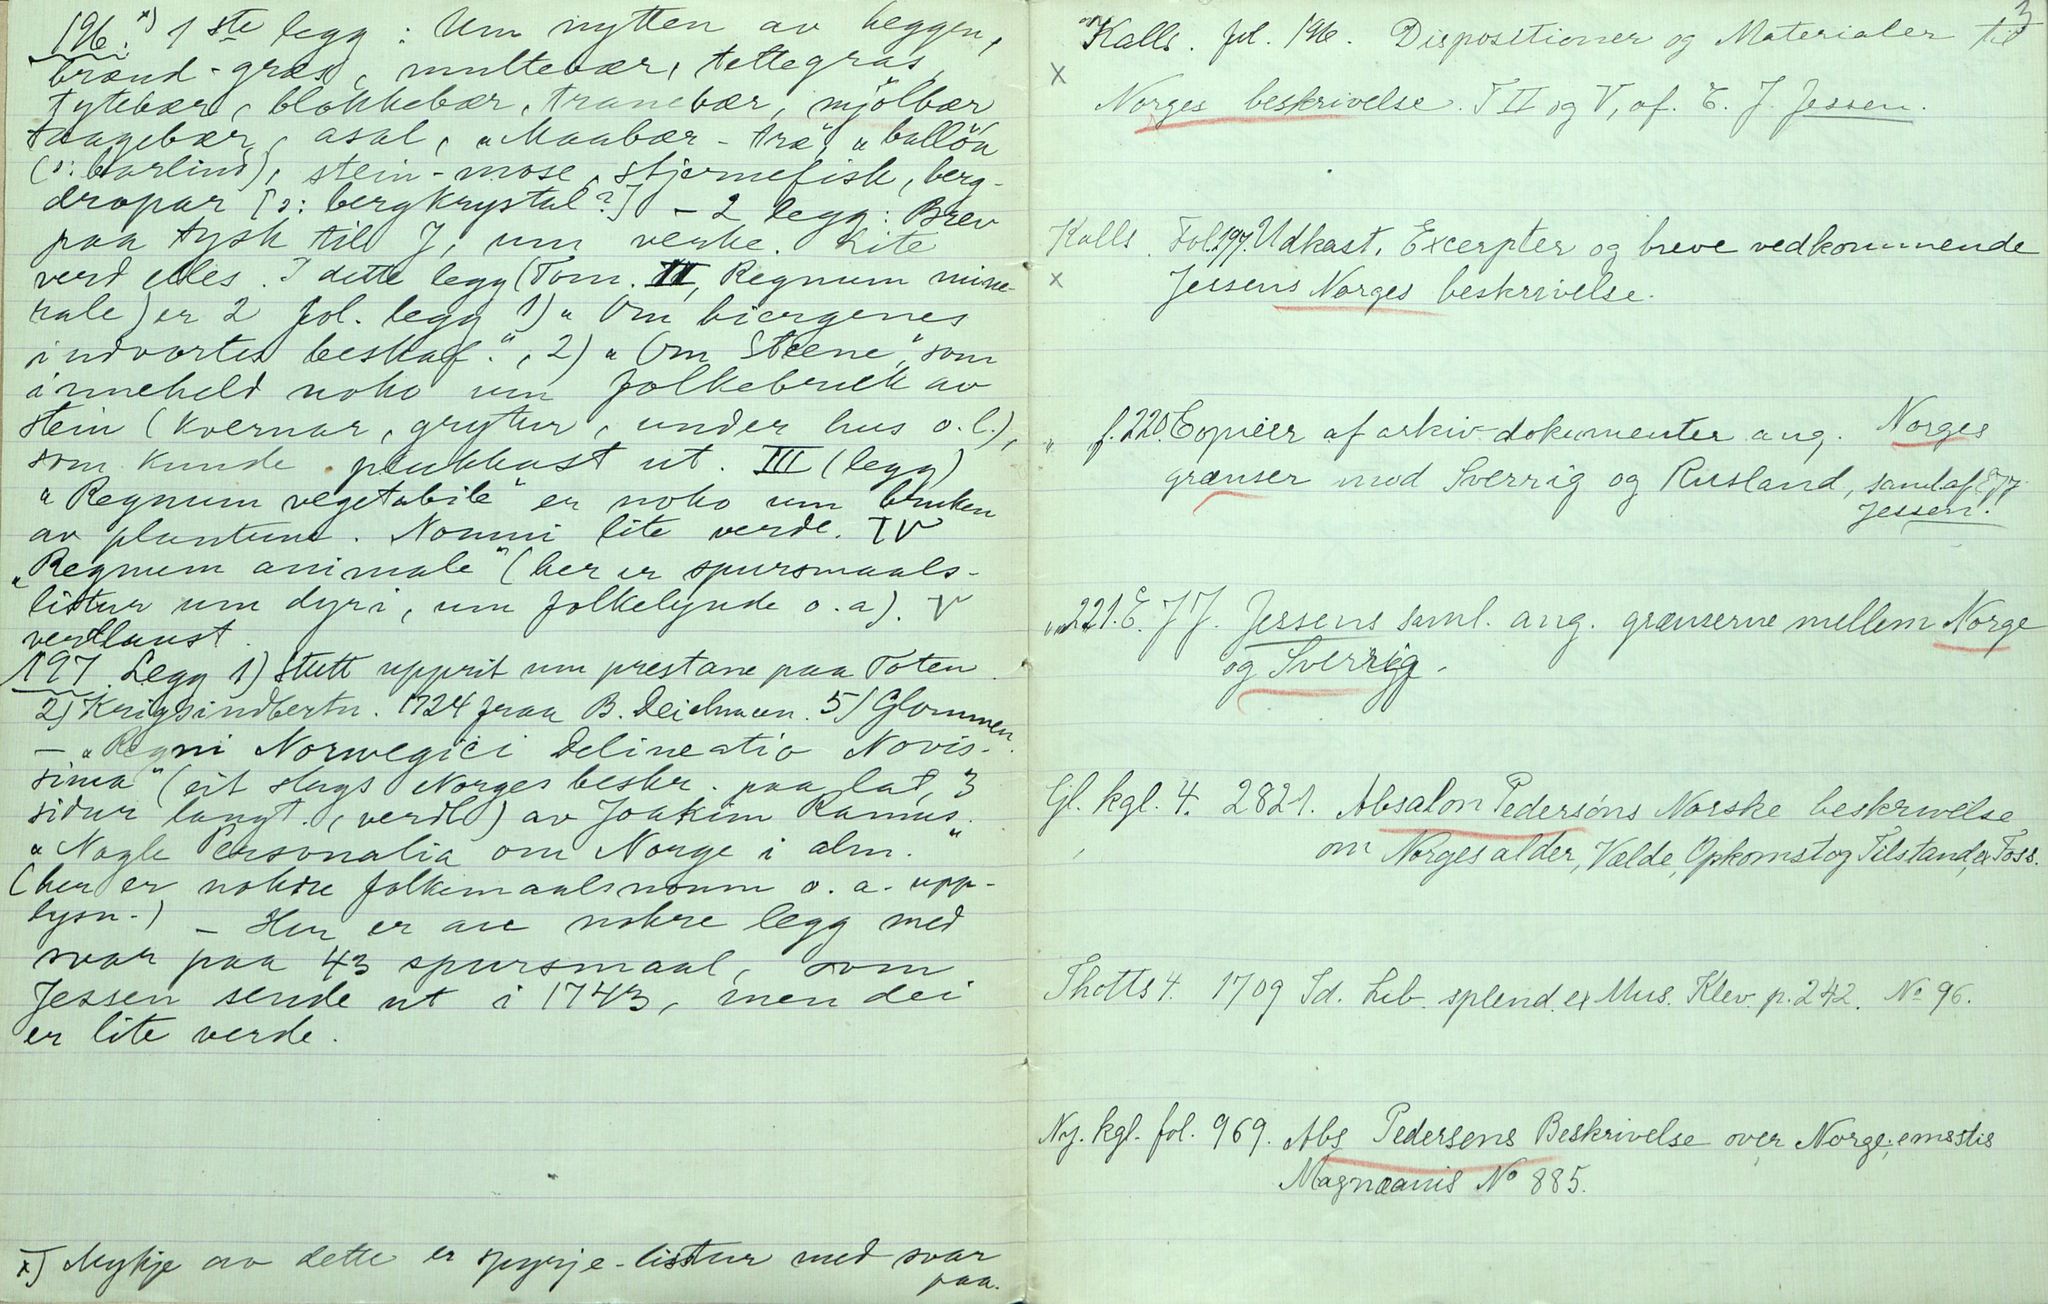 196. x) 1ste legg: Um nytten av heggen,
brand-gras, multebær, tettegras,
tytebær, blokkebær, tranebær, mjölbær
taagebær, asal, „Maabær-træ", „ballöa
(ɔ: barlind), stein-mose, stjernefisk, berg-
dropar [ɔ: bergkrystal?] – 2 legg: Brev
paa tysk til J, um verke. Lite
verd elles. I dette legg (Tom. II, Regnum mine-
rale) er 2 fol. legg 1) „Om biergenes
indvortes beskaf.", 2) „Om Steene", som
inneheld noko um folkebruk av
stein (kvernar, grytur, under hus o.l.),
som kunde plukkast ut. III (legg)
„Regnum vegetabile" er noko um bruken
av planturne. Nomni lite verde. IV
„Regnum animale" (her er spursmaals-
listur um dyri, um folkelynde o.a). V
verdlaust.
197 Legg 1) Stutt upprit um prestane paa Toten.
2) Krigsindbertn. 1724 fraa B. Deichmann. 5) Glommen.
– „Regni Norwegici Delineatio Novis-
sima" (eit slags Norges beskr. paa lat, 3
sidur langt., verdl) av Joakim Ramus.
„Nogle Personalia om Norge i alm."
(her er nokre folkemaalsnomn o. a. upp-
lysn.) – Her er au nokre legg med
svar paa 43 spursmaal, som
Jessen sende ut i 1743, men dei
er lite verde.
x) Mykje av dette er spyrje-listur med svar
paa.
3
Kalls. fol. 196. Dispositioner og Materialer til
x
Norges beskrivelse. T II og V, af E. J. Jessen.
Kalls. Fol. 197. Udkast, Excerpter og breve vedkommende
x
Jessens Norges beskrivelse.
„ f. 220. Copieer af arkiv-dokumenter ang. Norges
grænser mod Sverrig og Rusland, saml af EJJ.
Jessen.
„ „ 221. E. J J. Jessens saml. ang. grænserne mellem Norge
og Sverrig.
Gl. kgl. 4. 2821. Absalon Pedersöns Norske beskrivelse
om Norges alder, Vælde, Opkomst og Tilstand, ex Foss.
Thotts 4. 1709 Id. Lib. splend. ex Mus. Klev. p. 242. No 96.
Ny. kgl. fol. 969. Abs Pedersens Beskrivelse over Norge, e msstis
Magnæanis No 885.